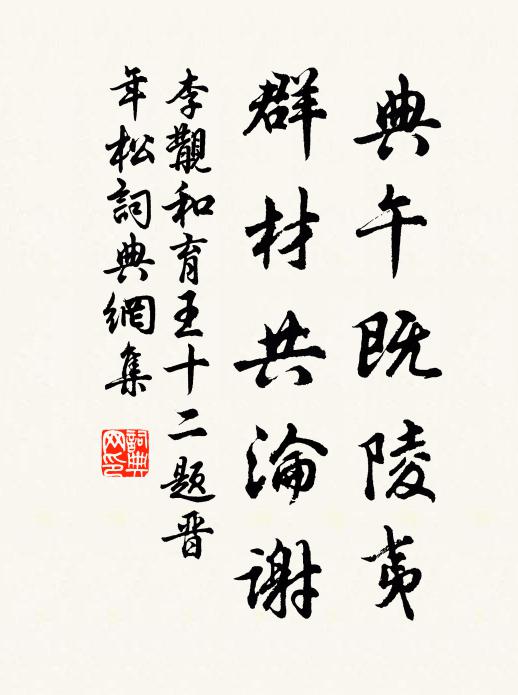 典午既陵夷
群材共淪谢
李觀和育王十二题晋
年松詞典網集
詞典
网印